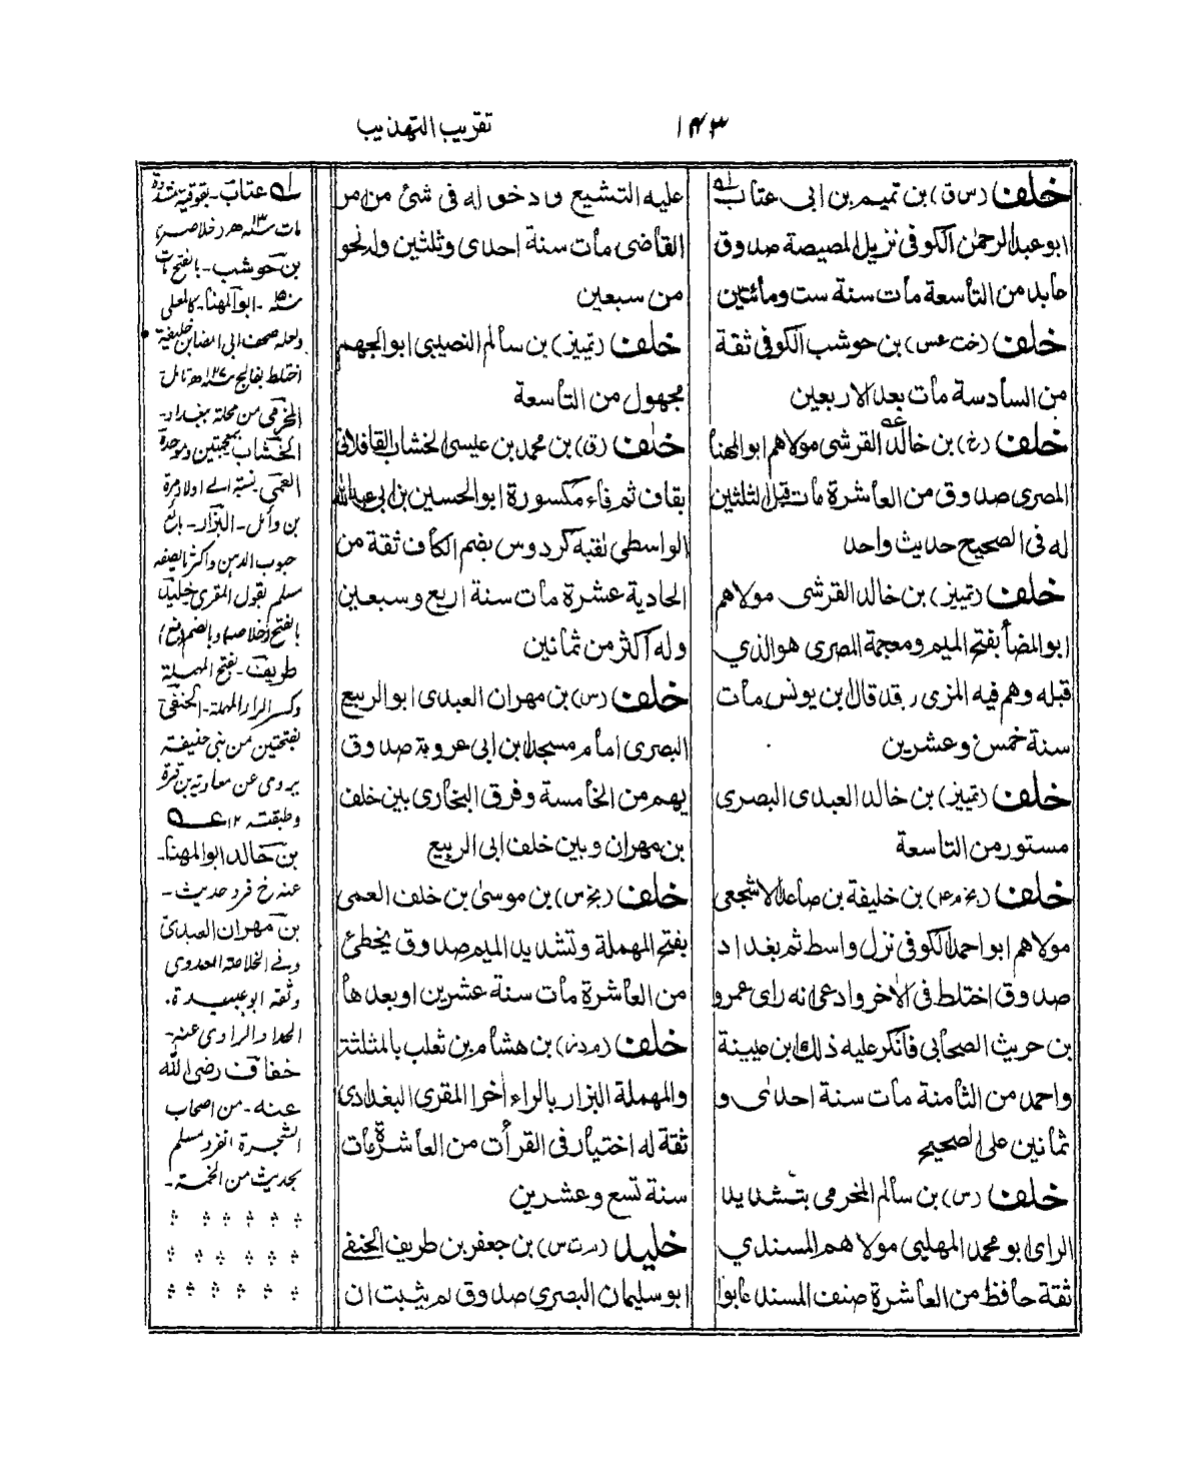 ١٤٣
تقريب التهذيب
خلف (س ق) بن تميم بن ابى عتاب
ابو عبد الرحمن الكوفى نزيل المصيصة صدوق
عابد من التاسعة مات سنة ست ومائتين
خلف (خت عس) بن حوشب الكوفى ثقة
من السادسة مات بعد الاربعين
خلف (خ) بن خالد القرشى مولاهم ابو المهنا
المصرى صدوق من العاشرة مات قبل الثلثين
له فى الصحيح حديث واحد
خلف (تمييز) بن خالد القرشى مولاهم
ابو المضأ بفتح الميم ومعجمة المصرى هو الذي
قبله وهم فيه المزى وقد قال ابن يونس مات
سنة خمس وعشرين
خلف (تمييز) بن خالد العبدى البصرى
مستور من التاسعة
خلف (بخ م عه) بن خليفة بن صاعد الاشجعى
مولاهم ابو احمد الكوفى نزل واسط ثم بغداد
صدوق اختلط فى الاخر وادعى انه راى عمرو
بن حريث الصحابى فانكر عليه ذلك ابن عيينة
واحمد من الثامنة مات سنة احدى و
ثمانين على الصحيح
خلف (س) بن سالم المخرمى بتشديد
الراى ابو محمد المهلبى مولاهم السندي
ثقة حافظ من العاشرة صنف المسند عابوا
عليه التشيع ودخوله فى شئ من امر
القاضى مات سنة احدى وثلثين وله نحو
من سبعين
خلف (تمييز) بن سالم النصيبى ابو الجهم
مجهول من التاسعة
خلف (ق) بن محمد بن عيسى الخشاب القافلانى
بقاف ثم فاء مكسورة ابو الحسين بن ابى عبد الله
الواسطى لقبه كردوس بضم الكاف ثقة من
الحادية عشرة مات سنة اربع وسبعين
وله اكثر من ثمانين
خلف (س) بن مهران العبدى ابو الربيع
البصرى امام مسجد ابن ابى عروبة صدوق
يهم من الخامسة وفرق البخارى بين خلف
بن مهران وبين خلف ابى الربيع
خلف (بخ س) بن موسى بن خلف العمى
بفتح المهملة وتشديد الميم صدوق يخطئ
من العاشرة مات سنة عشرين او بعدها
خلف (م د) بن هشام بن ثعلب بالمثلثة
والمهملة البزار بالراء اخرا المقرى البغدادى
ثقة له اختيار فى القرأت من العاشرة مات
سنة تسع وعشرين
خليد (م ت س) بن جعفر بن طريف الحنفى
ابو سليمان البصرى صدوق لم يثبت ان
له عتاب - بفوقية مشددة
مات سنة ٢١٣ هـ (خلاصه)
بن حوشب - بالفتح مات
ابو المهنا - كالمعلى
ولعله صحف ابى المضا بن خليفة
اختلط بفالج
المخرمى من محلة ببغداد -
الخشاب بمعجمتين وموحدة
العمى - نسبة الى اولاد مرة
بن وائل - البزار - بائع
مسلم بقول المقرى خليد
طريف - بفتح المهملة
وكسر الراء المهملة - الحنفى
بفتحتين من بنى حنيفة
يروى عن معاوية بن قرة
وطبقته ١٢ عه
بن خالد ابو المهنا -
عنه خ فرد حديث -
بن مهران العبدى
وفى الخلاصة العدوى
وثقه ابو عبيدة
الحداد الراوى عنه -
خفاف رضى الله
عنه - من اصحاب
الشجرة انفرد مسلم
بحديث من الخمسة -